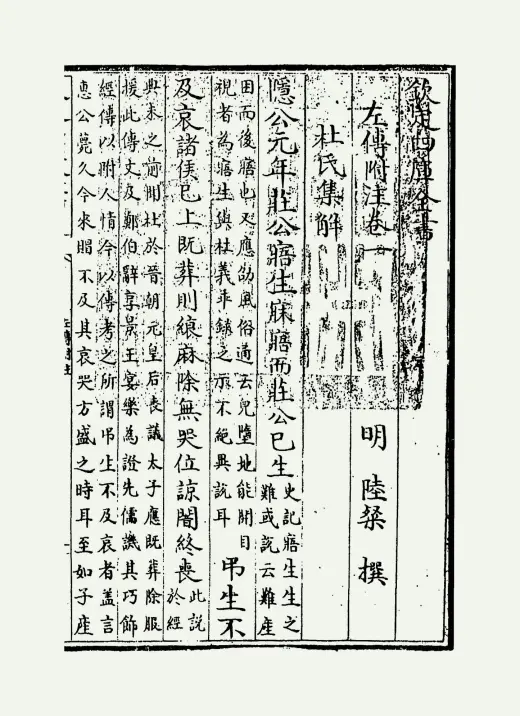 欽定四庫全書
左傳附注卷一
明 陸粲 撰
杜氏集解
隱公元年莊公寤生寐寤而莊公已生
史記寤生生之
難或説云難産
困而後寤也又應劭風俗通云兒墮地能開目
視者為寤生與杜義乖錄之示不絶異説耳
弔生不
及哀諸侯已上既葬則縗麻除無哭位諒闇終喪
此説
於經
典未之前聞杜於晉朝元皇后喪議太子應既葬除服
援此傳文及鄭伯辭享景王宴樂為證先儒譏其巧飾
經傳以附人情今以傳考之所謂弔生不及哀者蓋言
惠公薨久今來賵不及其哀哭方盛之時耳至如子産